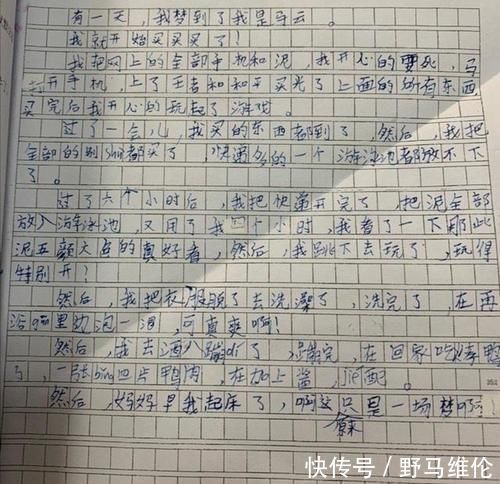 有一天，我梦到了我是马云。
我就开始买买买了！
我把网上的全部手机和泥，我开心的要死，马
开手机，上了王者和和平买光了上面的所有东西
买完后我开心的玩起了游戏。
过了一会儿，我买的东西都到了，然后，我把
全部的别shu都买了，快递多的一个游泳池都放不下
了。
过了六个小时后，我把快递开完了，把泥全部
放入游泳池，又用了我四个小时，我看了一下那些
泥五颜六色的真好看，然后，我跳下去玩了，玩得
特别开？
然后，我把衣服脱了去洗澡了，洗完了，在再
浴gang里边泡一泡，可真爽啊！
然后，我去酒八蹦di了，蹦完，在回家吃烤鸭
了，一张bing四片鸭肉，在加上酱，
然后，妈妈早我起床了，啊这只是一场梦啊
原来
快传号/野马维伦